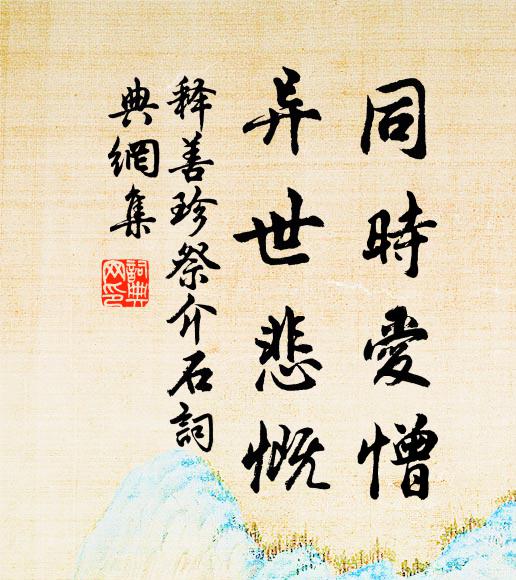 同時愛憎
异世悲慨
释善珍祭介石詞
典網集
詞典
网印